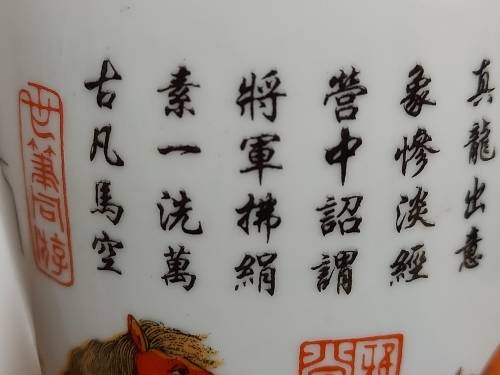 真龍出意
象慘淡經
營中詔謂
將軍拂絹
素一洗萬
古凡馬空